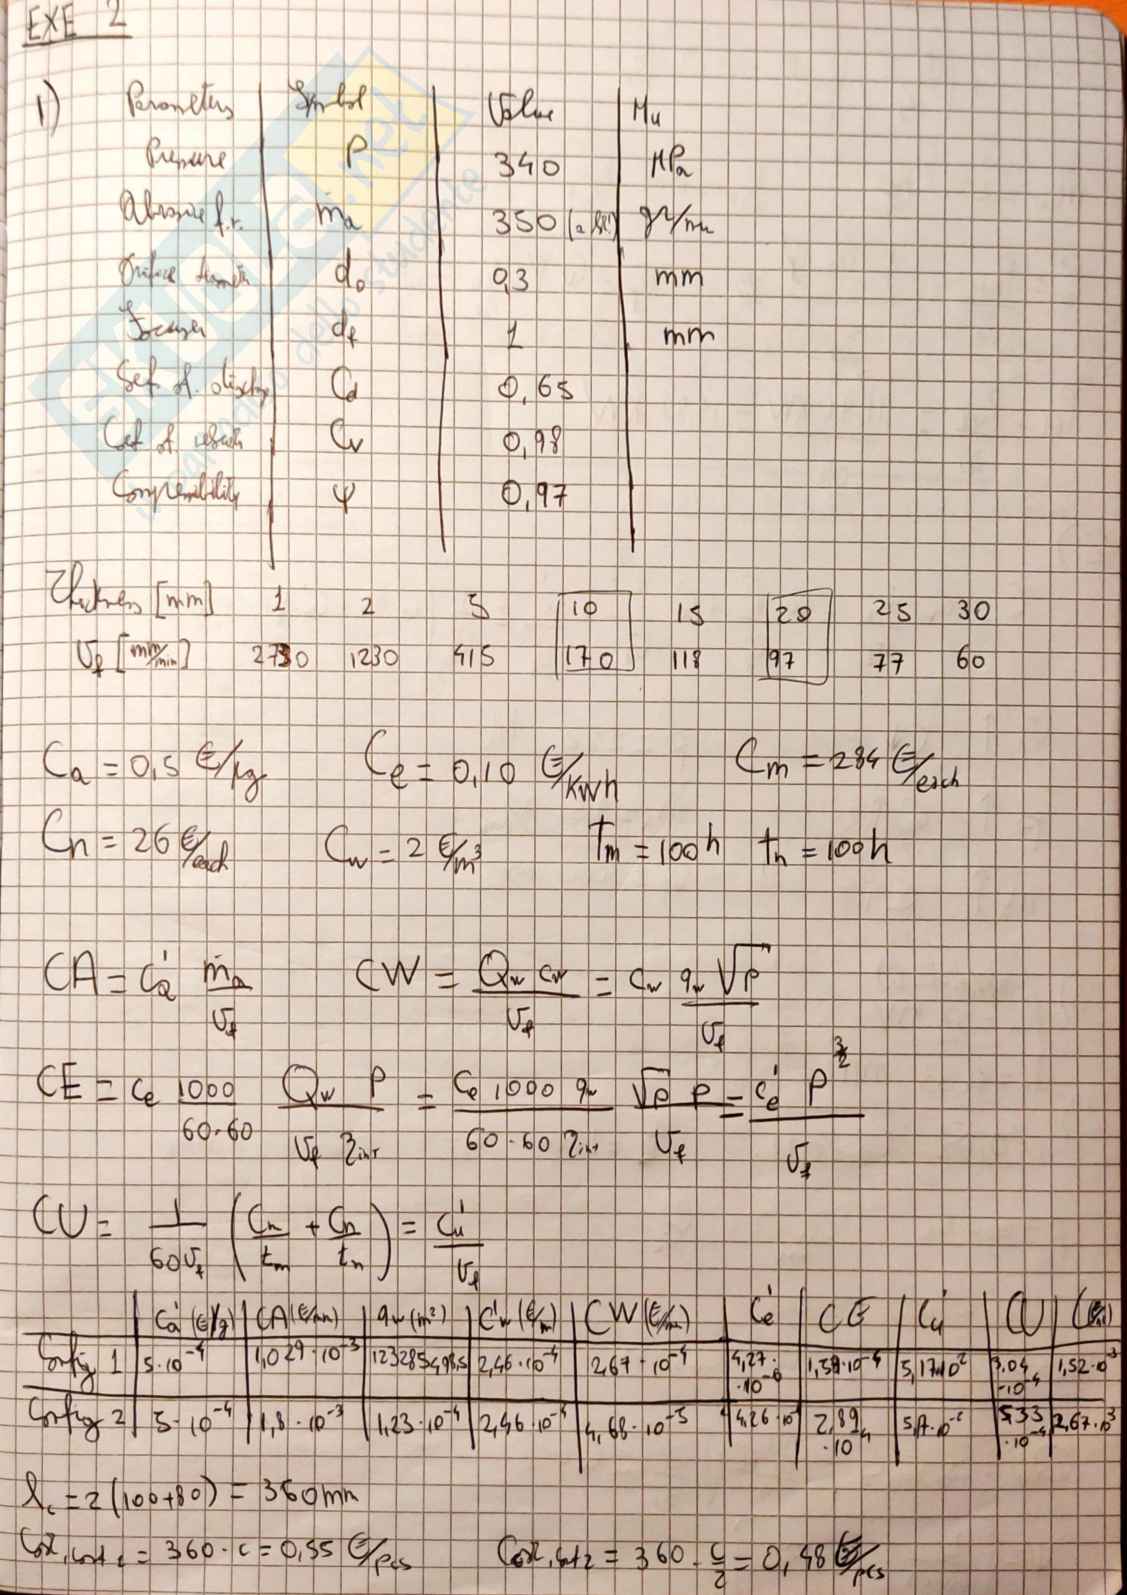 EXE 2
1) Parameters Symbol Value Mu
Pressure P 340 MPa
Abrasive f.r. ṁa 350 g/min
Orifice d₀ 0,3 mm
Focuser df 1 mm
Coef of. Cd 0,65
Coef of Cv 0,98
Compressibility ψ 0,97
Thickness [mm] 1 2 5 10 15 20 25 30
Vf [mm/min] 2730 1230 415 170 118 97 77 60
Ca = 0,5 €/kg Ce = 0,10 €/kWh Cm = 284 €/each
Cn = 26 €/each Cw = 2 €/m³ tm = 100h tn = 100h
CA = Ca' ṁa/Vf CW = Qw cw/Vf = cw qw √p/Vf
CE = ce 1000/60·60 Qw P/Vf ηint = ce 1000 qw/60·60 ηint √p p/Vf = ce' p^3/2/Vf
CU = 1/60Vf (Cn/tm + Cn/tn) = Cu'/Vf
Ca' (€/g) CA (€/mm) qw (m²) Cw' (€/m) CW (€/m) Ce' CE Cu' CU
Config 1 5·10⁻⁴ 1,029·10⁻³ 2,46·10⁻⁴ 2,67·10⁻⁴ 4,27·10⁻⁶ 5,17·10² 3,04·10⁻⁴ 1,52·10⁻³
Config 2 5·10⁻⁴ 1,8·10⁻³ 1,23·10⁻⁴ 2,46·10⁻⁴ 4,68·10⁻⁵ 2,89·10⁻⁴ 5,33·10⁻⁴ 2,67·10³
lc = 2 (100+80) = 360mm
= 360·c = 0,55 €/pcs = 360·c/2 = 0,48 €/pcs